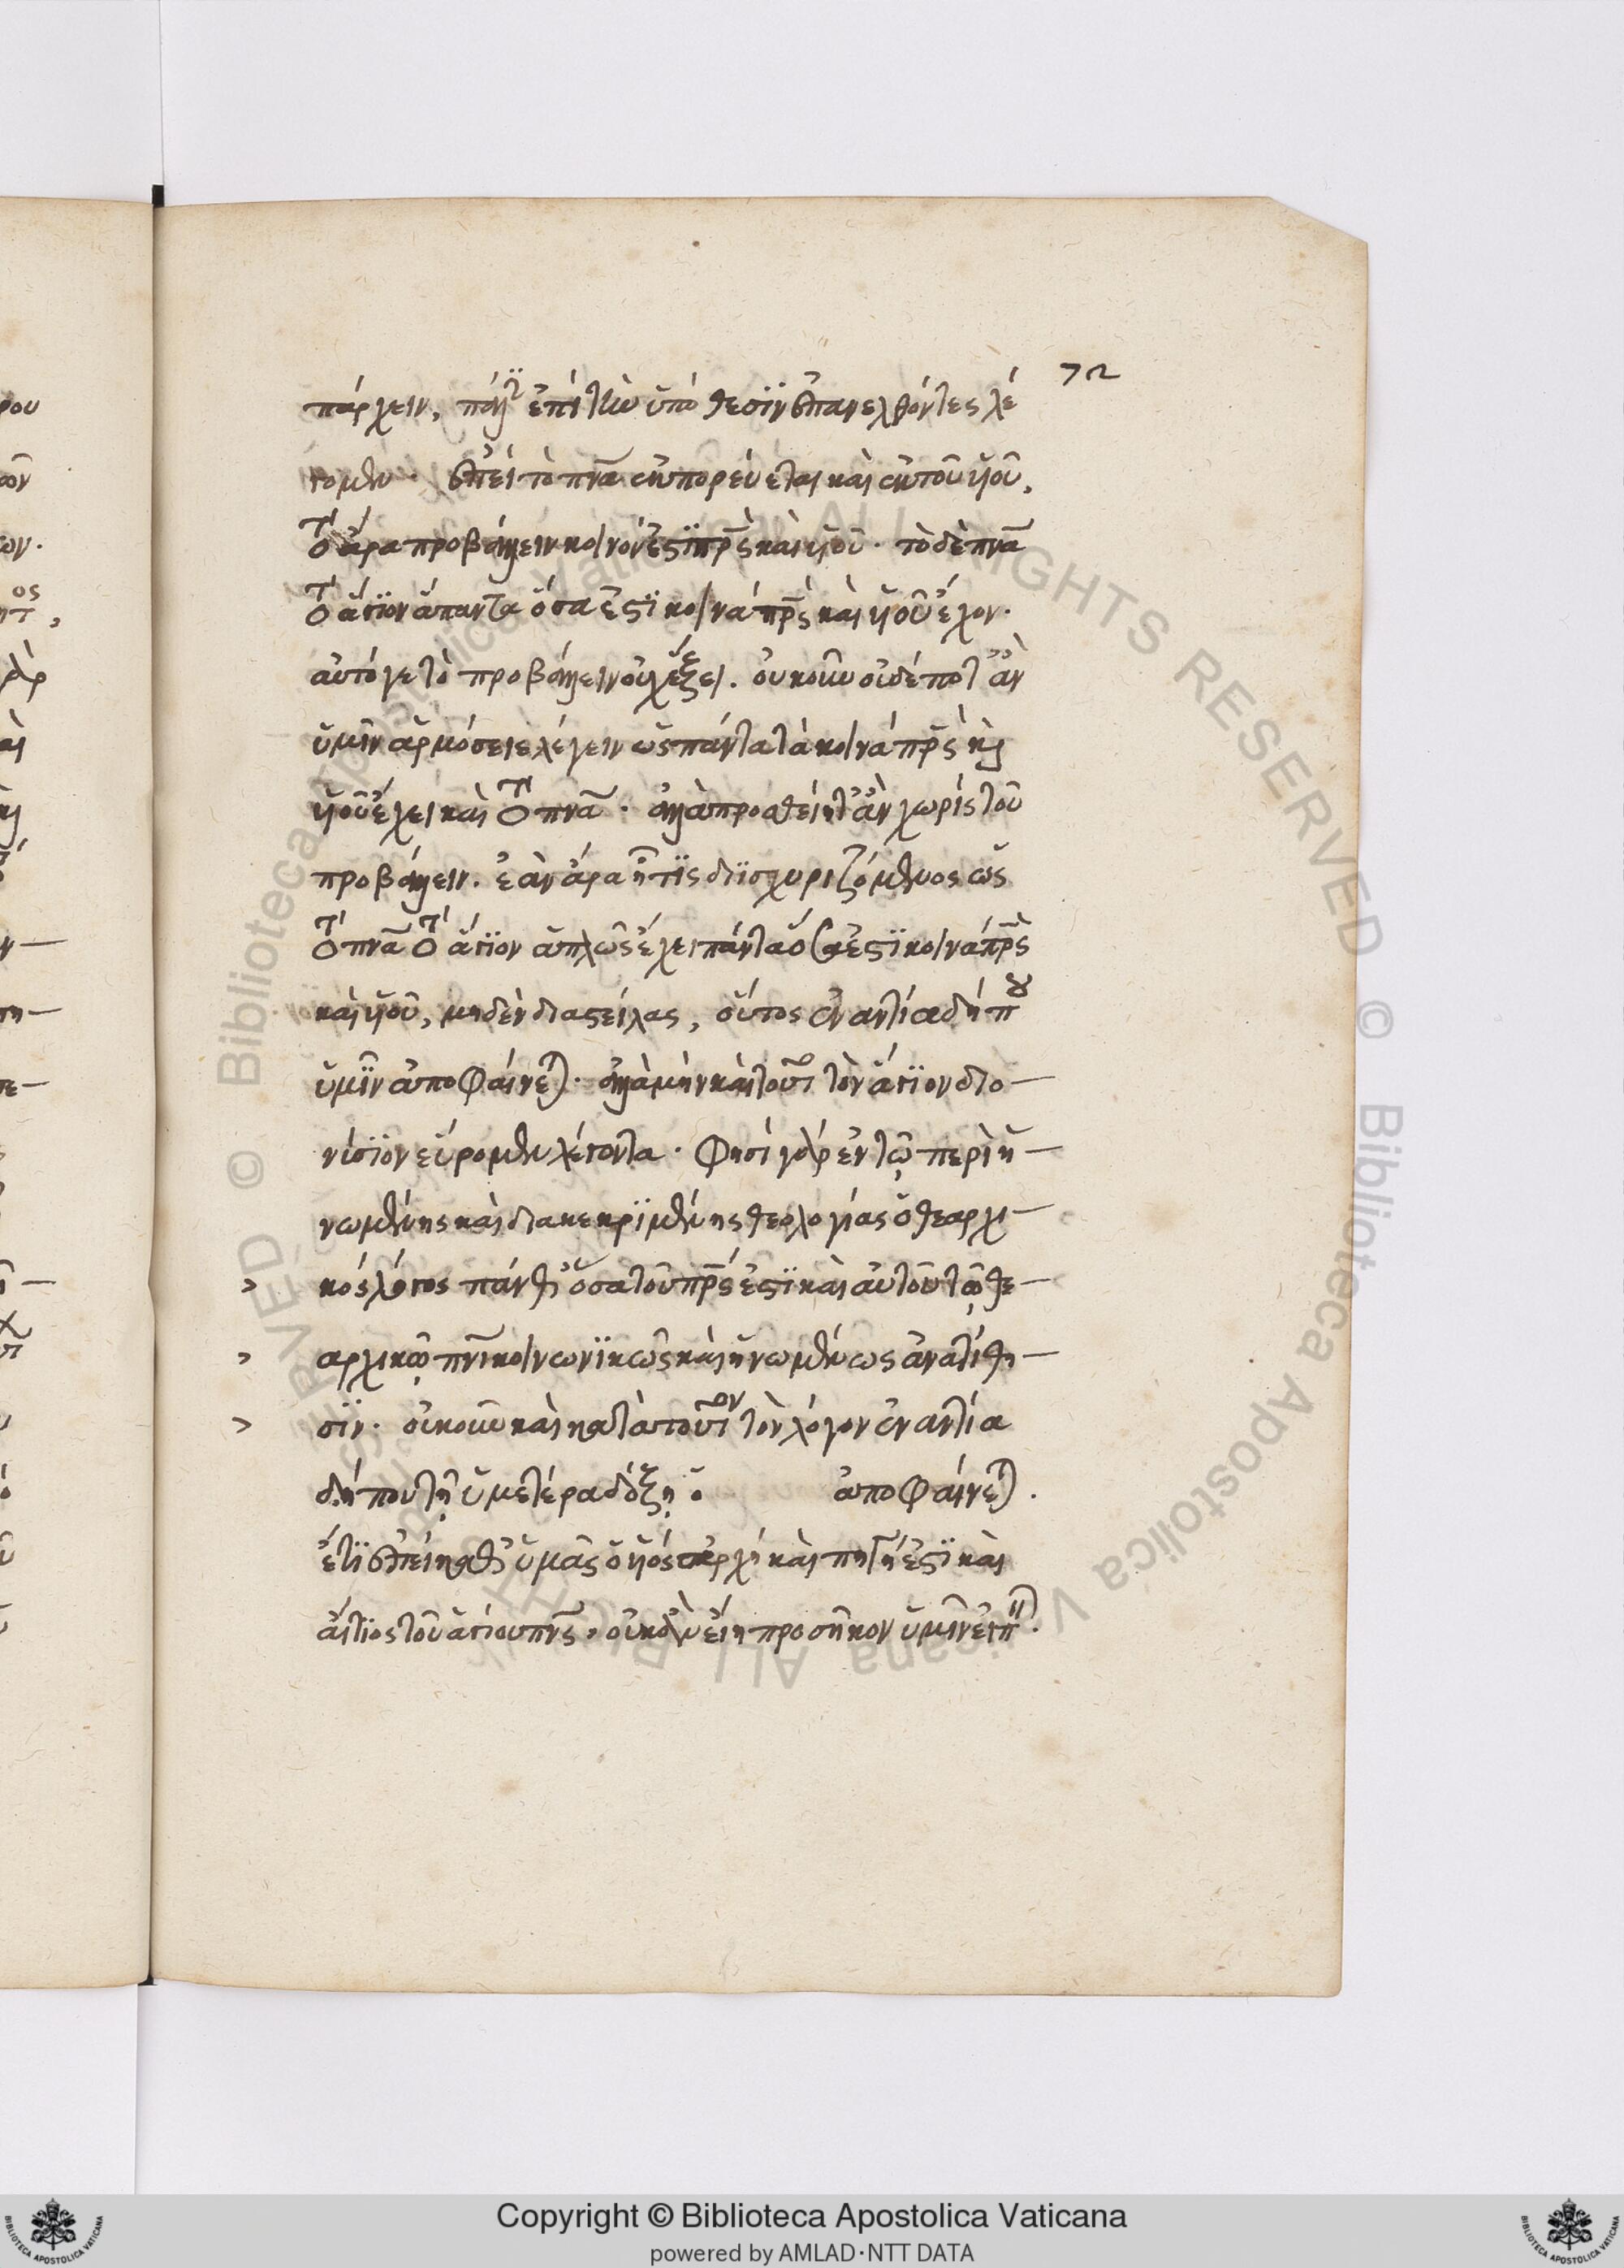 72
πάρχειν, πάλιν ἐπὶ τὴν ὑπόθεσιν ἐπανελθόντες λέ
γομεν· ἐπεὶ τὸ πνα ἐκπορεύεται καὶ ἐκ τοῦ υἱοῦ,
τὸ ἄρα προβάλλειν κοινόν ἐστι πρς καὶ υἱοῦ· τὸ δὲ πνα
τὸ ἅγιον ἅπαντα ὅσα ἐστὶ κοινὰ πρς καὶ υἱοῦ ἔχον·
αὐτό γε τὸ προβάλλειν οὐχ ἕξει. οὐκοῦν οὐδέποτ' ἂν
ὑμῖν ἁρμόσειε λέγειν ὡς πάντα τὰ κοινὰ πρς καὶ
υἱοῦ ἔχει καὶ τὸ πνα· ἀλλὰ προσθείητ' ἂν χωρὶς τοῦ
προβάλλειν. ἐὰν ἄρα ᾖ τις διισχυριζόμενος ὡς
τὸ πνα τὸ ἅγιον ἁπλῶς ἔχει πάντα ὅσα ἐστὶ κοινὰ πρς
καὶ υἱοῦ, μηδὲν διαστείλας, οὗτος ἐναντία δήπου
ὑμῖν ἀποφαίνεται· ἀλλὰ μὴν καὶ τοῦτον τὸν ἅγιον διο-
νύσιον εὕρομεν λέγοντα· φησὶ γὰρ ἐν τῷ περὶ ἡ-
νωμένης καὶ διακεκριμένης θεολογίας ὁ θεαρχι-
> κὸς λόγος πάνθ' ὅσα τοῦ πρς ἐστὶ καὶ αὐτοῦ τῷ θε-
> αρχικῷ πνι κοινωνικῶς καὶ ἡνωμένως ἀνατίθη-
> σιν· οὐκοῦν καὶ κατὰ τοῦτον τὸν λόγον ἐναντία
δήπου τῇ ὑμετέρα δόξῃ ὁ ἀποφαίνεται.
ἔτι ἐπεὶ καθ' ὑμᾶς ὁ υἱὸς ἀρχὴ καὶ πηγή ἐστι καὶ
αἴτιος τοῦ ἁγίου πνς, οὐκ ἂν εἴη προσῆκον ὑμῖν